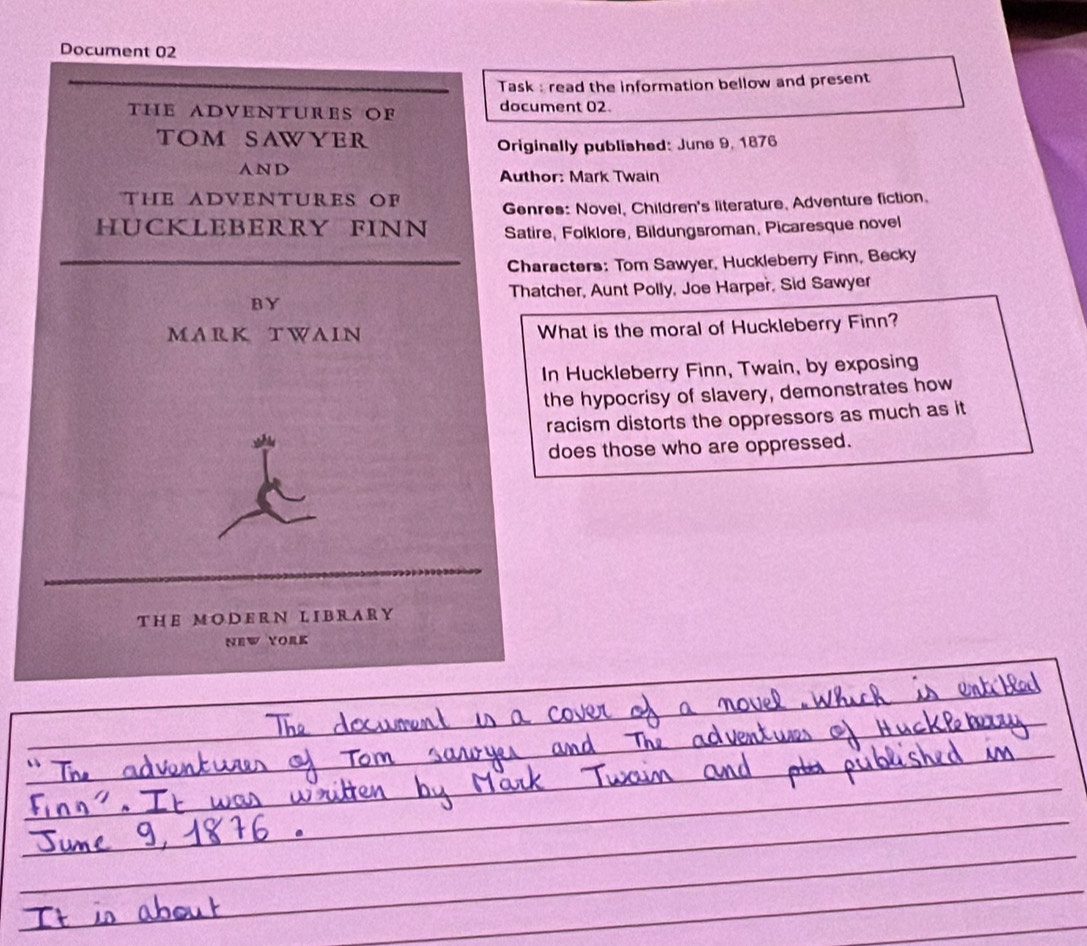 Document 02
THE ADVENTURES OF
TOM SAWYER
AND
THE ADVENTURES OF
HUCKLEBERRY FINN
BY
MARK TWAIN
THE MODERN LIBRARY
NEW YORK
Task : read the information bellow and present
document 02.
Originally published: June 9, 1876
Author: Mark Twain
Genres: Novel, Children's literature, Adventure fiction,
Satire, Folklore, Bildungsroman, Picaresque novel
Characters: Tom Sawyer, Huckleberry Finn, Becky
Thatcher, Aunt Polly, Joe Harper, Sid Sawyer
What is the moral of Huckleberry Finn?
In Huckleberry Finn, Twain, by exposing
the hypocrisy of slavery, demonstrates how
racism distorts the oppressors as much as it
does those who are oppressed.
The document is a cover of a novel. Which is entitled
"The adventures of Tom sawyer and The adventures of Huckleberry
Finn". It was written by Mark Twain and published in
June 9, 1876.
It is about